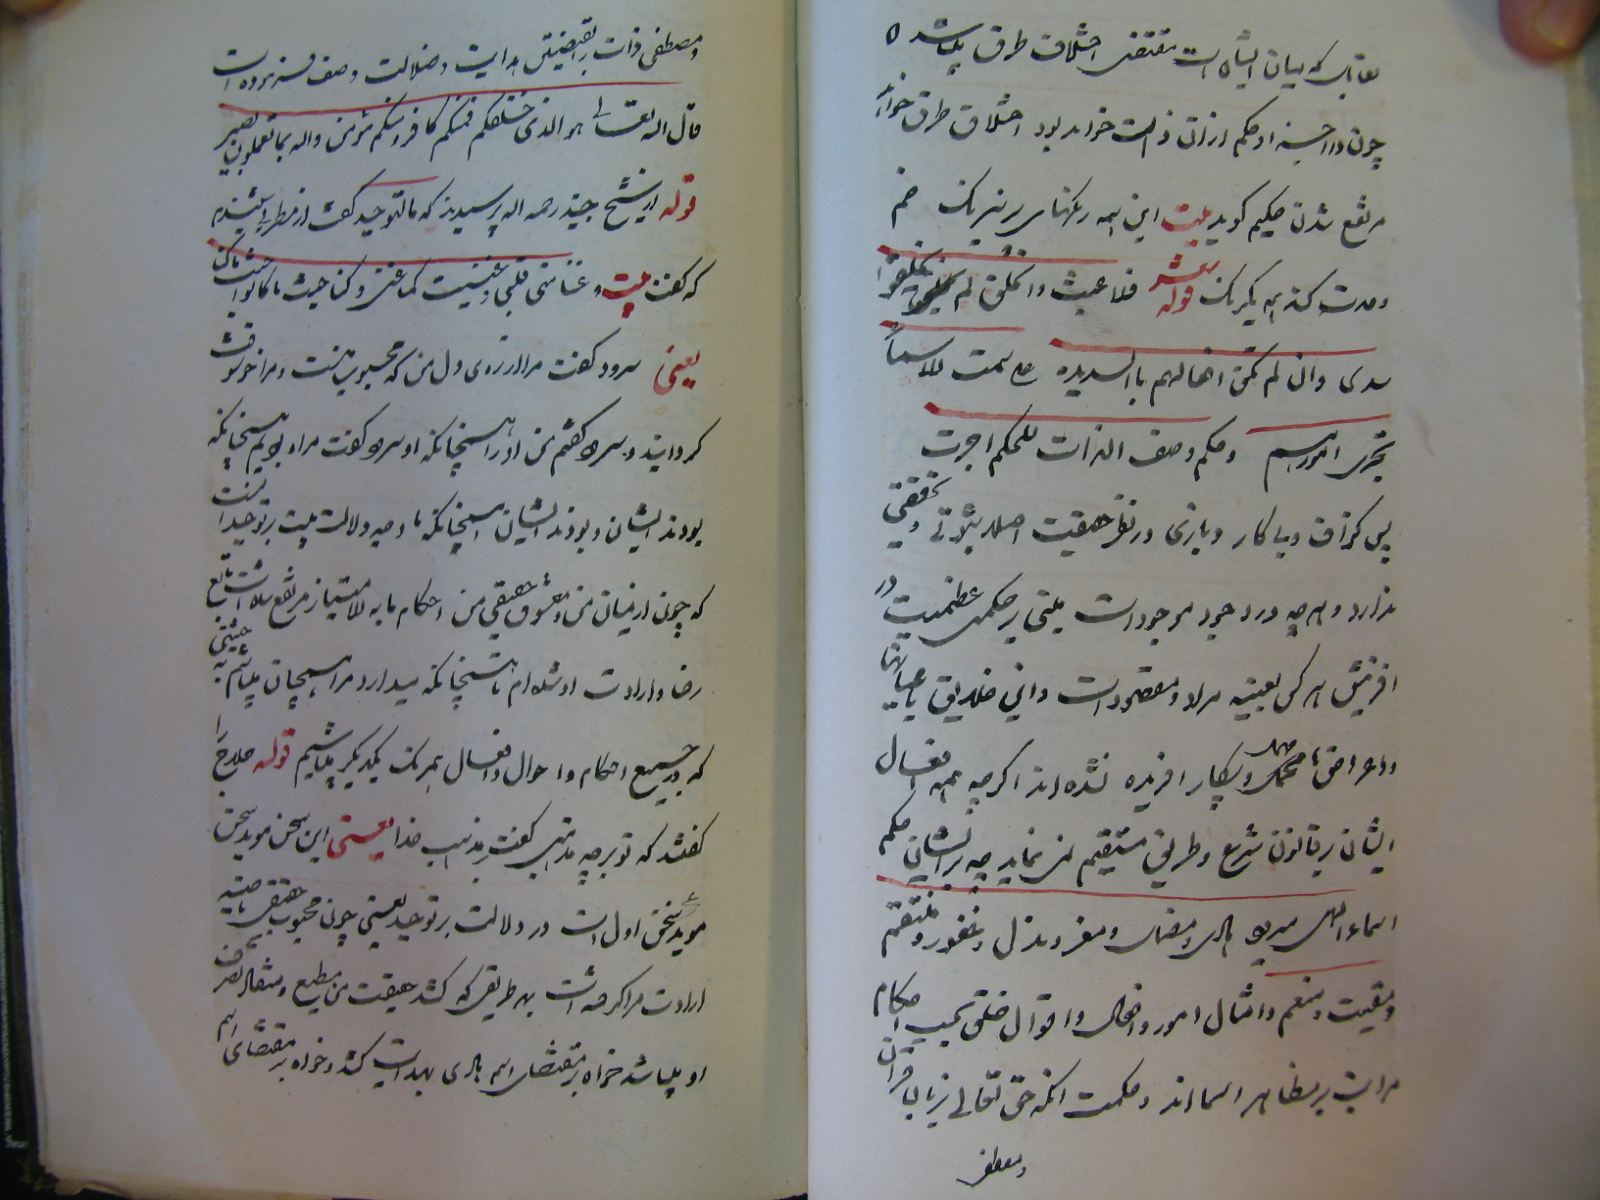 تقابل که میان ایشان است مقتضی اختلاف طرق میباشد
چون در احسنه او حکم ازان ذات خواهد بود اختلاف طرق خواهد
مرتفع شدن حکیم گوید بیت این همه رنگهای پر نیرنگ خم
وحدت کند همه یکرنگ قوله شعر فلا عبث والخلق لم یخلقوا
سدی وان لم تکن افعالهم بالسدیده علی سمت الاسما
تجری امورهم وحکم وصف الذات للحکم اجرت
پس گزاف و بیکار و بازی در نظر حقیقت اصلا ثبوتی و تحققی
ندارد و هرچه در وجود موجود است مبنی بر حکمتی عظیمست در
آفرینش هر کس بعینه مراد و مقصود است و این خلایق با عیانها
واعراضها مهمل و بیکار افریده نشده اند اگرچه همه افعال
ایشان بر قانون شرع و طریق مستقیم نمی نماید چه بر ایشان حکم
اسماء الهی میرود هادی و مضل و معز و مذل و غفور و منتقم
و مقیت و منعم و امثال امور و افعال و اقوال خلق بحسب احکام
مراتب بر مظاهر اسما اند و حکمت انکه حق تعالی بزبان قران
ومصطفی
ومصطفی ذات را بقبضتین هدایت و ضلالت وصف فرموده است
قال اله تعالی هو الذی خلقکم فمنکم کافر ومنکم مؤمن واله بما تعملون بصیر
قوله از شیخ جنید رحمه اله پرسیدند که ما التوحید گفت از مطربی شنیدم
که گفت بیت و غنا لی منی قلبی وغنیت کما غنی وکنا حیث ما کانوا وکانوا حیث ما کنا
یعنی سرود گفت مرا ارزوی دل من که محبوب منست و مرا خوشوقت
گردانید و سرود گفتم من او را همچنانکه او سرود گفت مرا و بودیم همچنانکه
بودند ایشان و بودند ایشان همچنانکه ما و چه دلالت بیت بر توحید انست
که چون از میان من و معشوق حقیقی من احکام ما به الامتیاز مرتفع شده است تابع
رضا و ارادت او شده ام تا همچنانکه میدارد مرا همچنان میباشم به حیثیتی
که در جمیع احکام و احوال و افعال همرنگ یکدیگر میباشیم قوله حلاج را
گفتند که تو بر چه مذهبی گفت بر مذهب خدا یعنی این سخن موید سخن
موید سخن اول است در دلالت بر توحید یعنی چون محبوب حقیقی ناصیه
ارادت مرا گرفته است بهر طریقی که کشد حقیقت من مطیع و منقاد تصرف
او میباشد خواه بر مقتضای اسم هادی بهدایت کشد و خواه بر مقتضای اسم